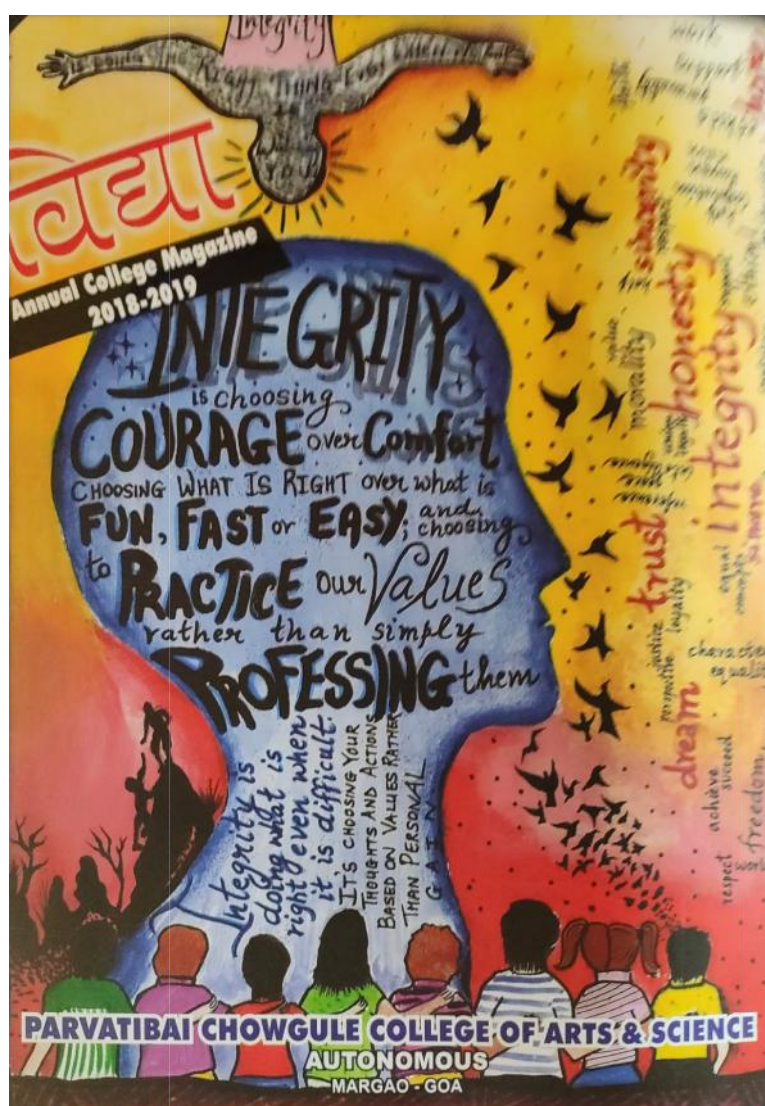 Integrity
is Doing The RIGHT THING Even When
विद्या
Annual College Magazine
2018-2019
INTEGRITY
is choosing
COURAGE over Comfort
CHOOSING WHAT IS RIGHT over what is
FUN, FAST or EASY; and choosing
to PRACTICE our Values
rather than simply
PROFESSING them
Integrity is
doing what is
right even when
it is difficult.
IT'S CHOOSING YOUR
THOUGHTS AND ACTIONS
BASED ON VALUES RATHER
THAN PERSONAL
GAIN
work
support
sincerity
respect
honesty
integrity
value
morality
trust
loyalty
justice
equal
dream
achieve
succeed
respect
freedom
PARVATIBAI CHOWGULE COLLEGE OF ARTS & SCIENCE
AUTONOMOUS
MARGAO - GOA